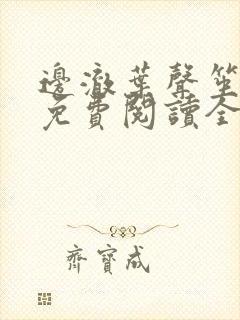 邊澈葉聲笙
免費閱讀全
齊寶成